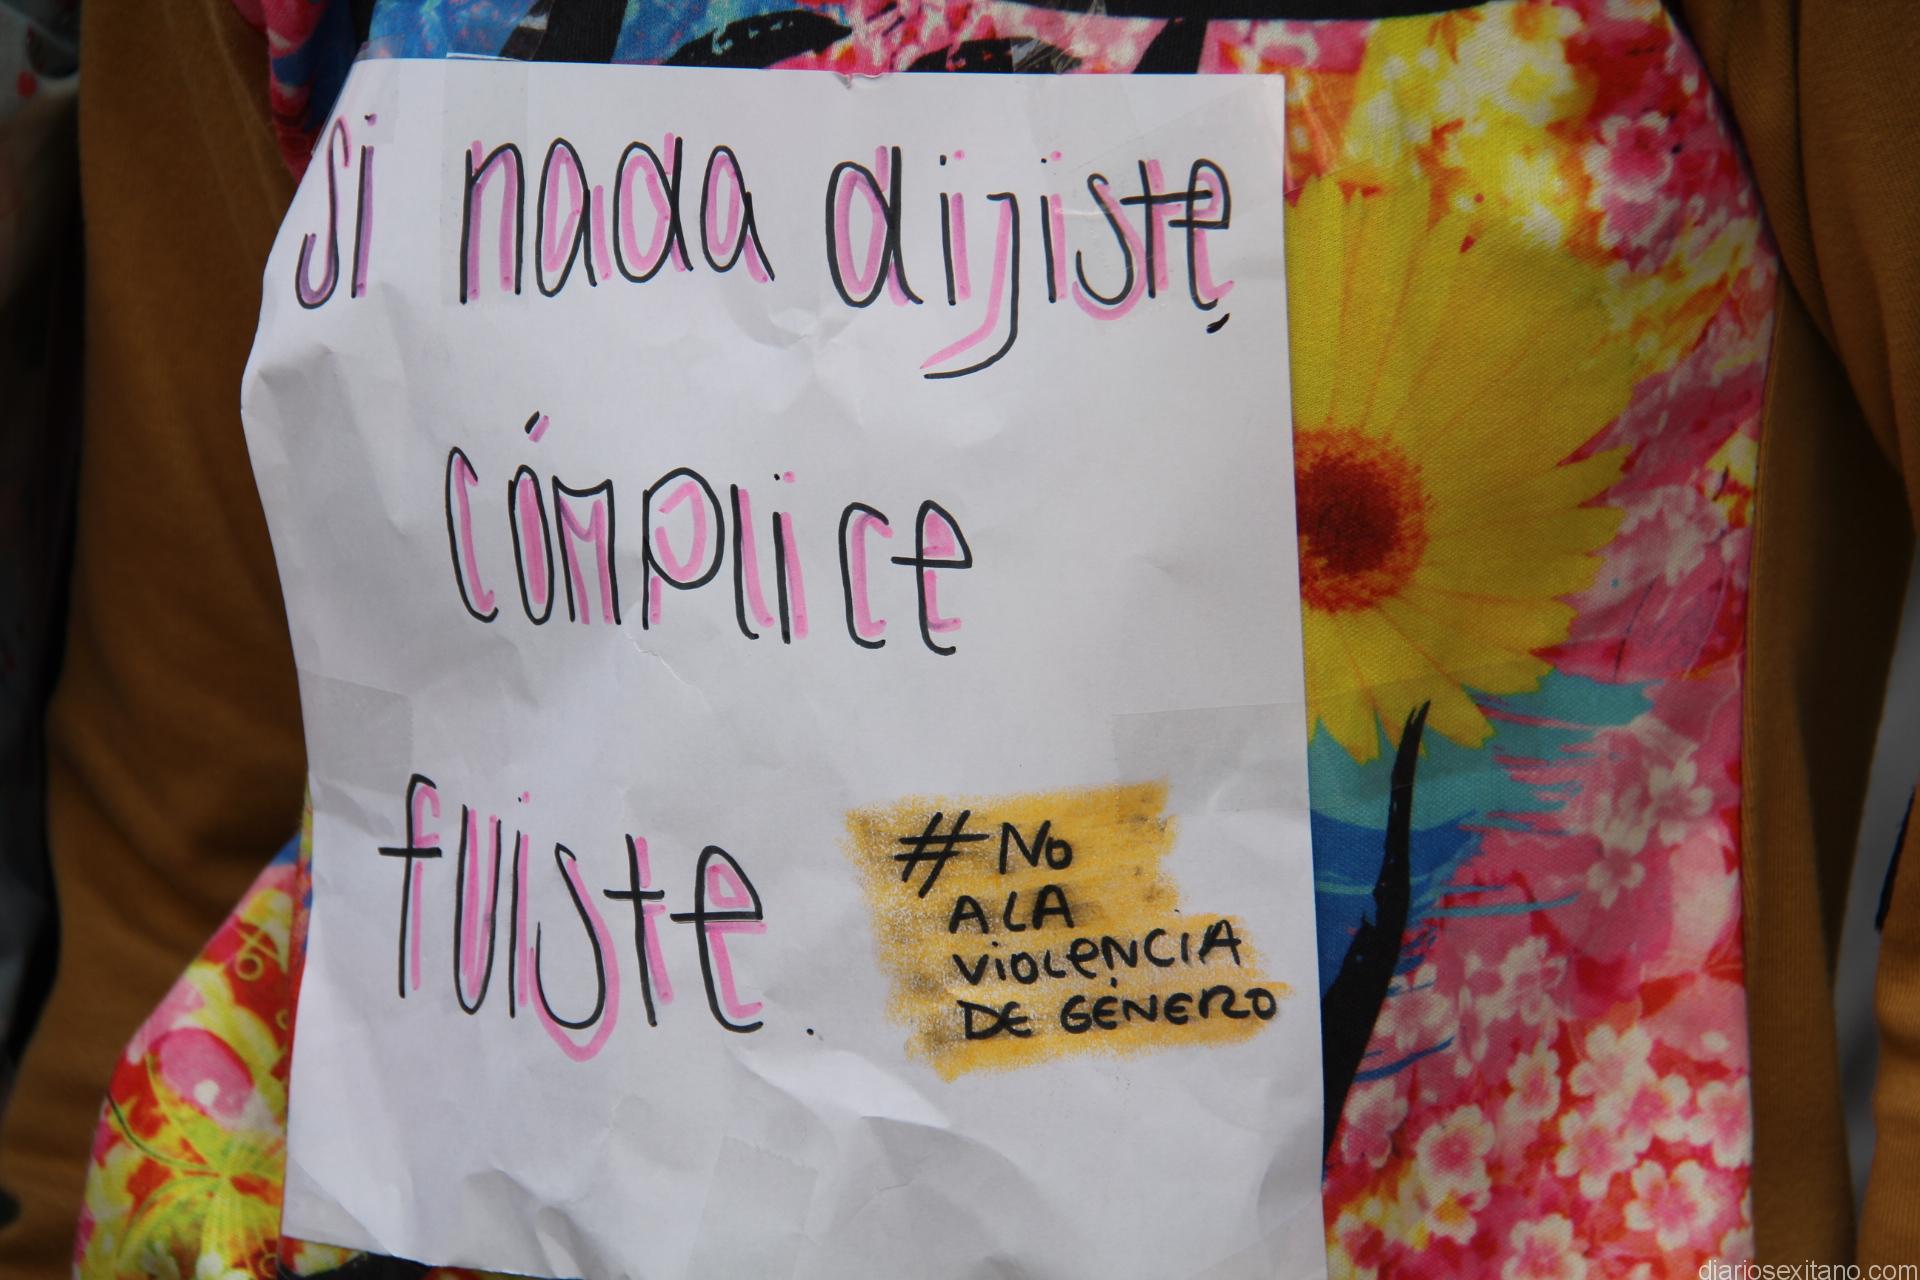 si nada dijiste,
cómplice
fuiste.
# No
A LA
VIOLENCIA
DE GÉNERO
diariosexitano.com